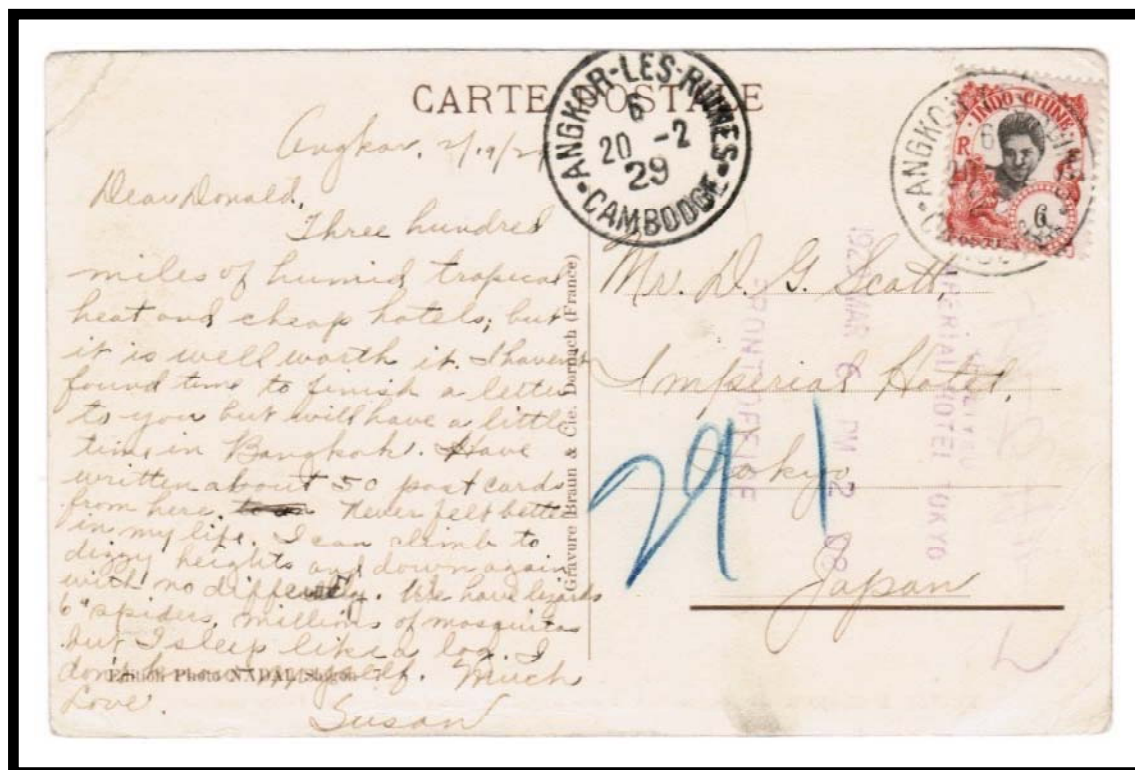 CARTE POSTALE
ANGKOR-LES-RUINES
6
20 -2
29
CAMBODGE
INDO-CHINE
R F
6
POSTES
ANGKOR
Angkor, 2/19/29
Dear Donald,
Three hundred
miles of humid tropical
heat and cheap hotels, but
it is well worth it. I haven't
found time to finish a letter
to you but will have a little
time in Bangkok. Have
written about 50 post cards
from here. Never felt better
in my life. I can climb to
dizzy heights and down again
with no difficulty. We have lizards
6" spiders, millions of mosquitos
but I sleep like a log. I
don't myself. Much
Love.
Susan
Edition Photo NADAL Saigon
Gravure Braun & Cie. Dornach (France)
Mr. D. G. Scott,
Imperial Hotel,
Tokyo
Japan
291
1929 MAR 6 PM 2 08
FRONT OFFICE
IMPERIAL HOTEL TOKYO